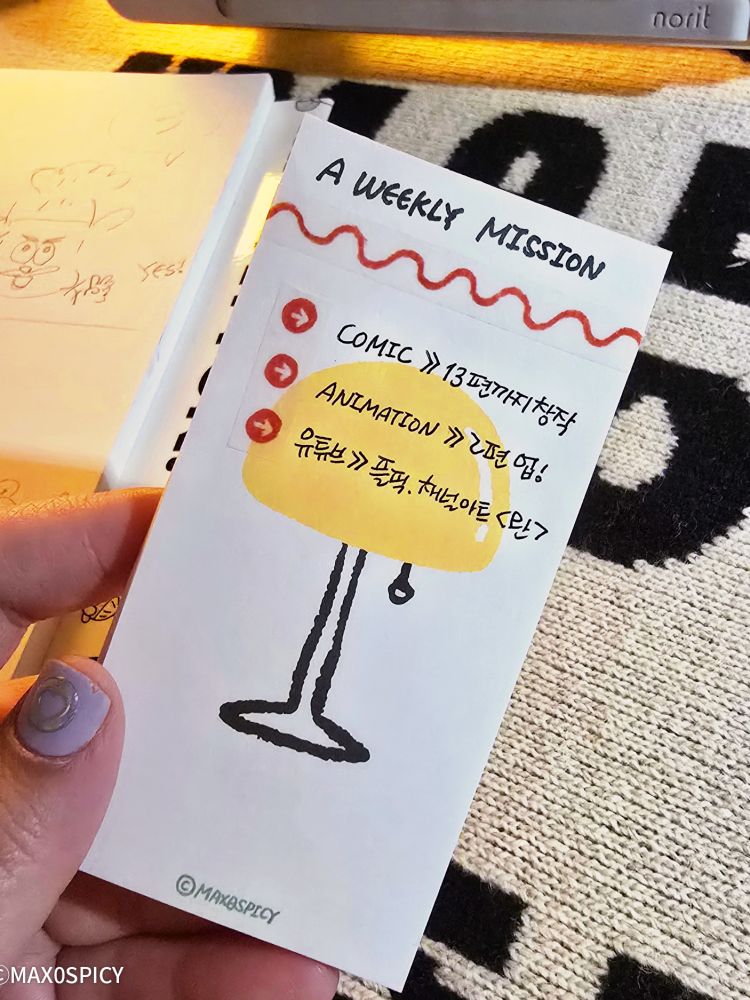 norit
YES!
A WEEKLY MISSION
COMIC » 13편까지 창작
ANIMATION » 2편 업!
유튜브 » 플픽. 채널아트 <완>
©MAX0SPICY
©MAX0SPICY